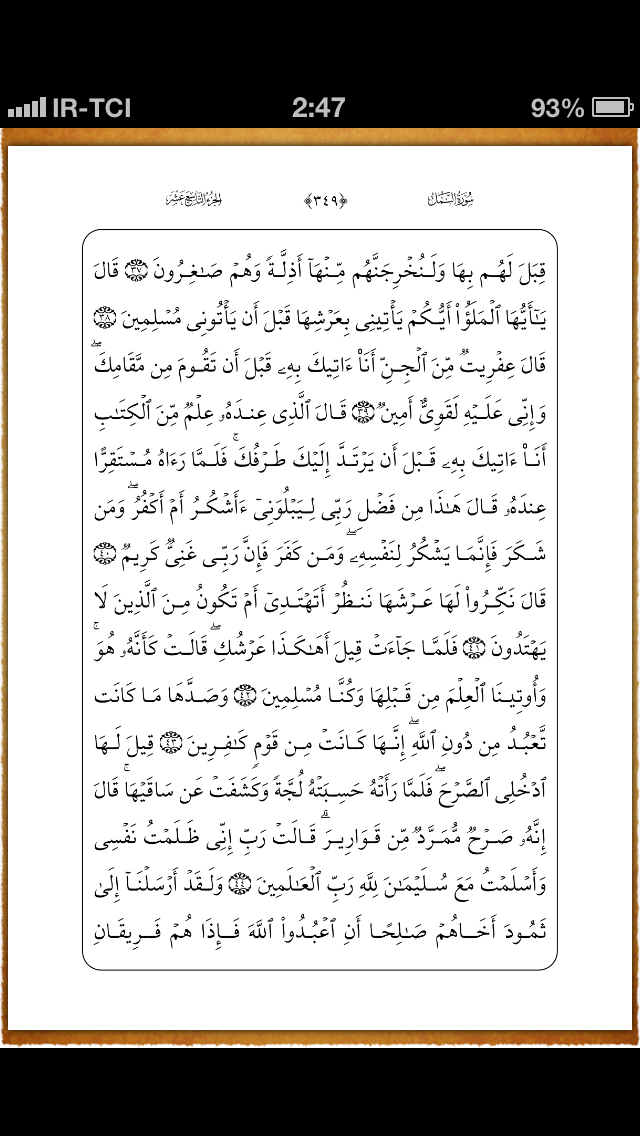 IR-TCI 2:47 93%
سُورَةُ النَّمل ﴿٣٤٩﴾ الجُزءُ التَّاسِعَ عَشَرَ
قِبَلَ لَهُم بِهَا وَلَنُخْرِجَنَّهُم مِّنْهَآ أَذِلَّةً وَهُمْ صَـٰغِرُونَ ٣٧ قَالَ
يَـٰٓأَيُّهَا ٱلْمَلَؤُا۟ أَيُّكُمْ يَأْتِينِى بِعَرْشِهَا قَبْلَ أَن يَأْتُونِى مُسْلِمِينَ ٣٨
قَالَ عِفْرِيتٌ مِّنَ ٱلْجِنِّ أَنَا۠ ءَاتِيكَ بِهِۦ قَبْلَ أَن تَقُومَ مِن مَّقَامِكَ ۖ
وَإِنِّى عَلَيْهِ لَقَوِىٌّ أَمِينٌ ٣٩ قَالَ ٱلَّذِى عِندَهُۥ عِلْمٌ مِّنَ ٱلْكِتَـٰبِ
أَنَا۠ ءَاتِيكَ بِهِۦ قَبْلَ أَن يَرْتَدَّ إِلَيْكَ طَرْفُكَ ۚ فَلَمَّا رَءَاهُ مُسْتَقِرًّا
عِندَهُۥ قَالَ هَـٰذَا مِن فَضْلِ رَبِّى لِيَبْلُوَنِىٓ ءَأَشْكُرُ أَمْ أَكْفُرُ ۖ وَمَن
شَكَرَ فَإِنَّمَا يَشْكُرُ لِنَفْسِهِۦ ۖ وَمَن كَفَرَ فَإِنَّ رَبِّى غَنِىٌّ كَرِيمٌ ٤٠
قَالَ نَكِّرُوا۟ لَهَا عَرْشَهَا نَنظُرْ أَتَهْتَدِىٓ أَمْ تَكُونُ مِنَ ٱلَّذِينَ لَا
يَهْتَدُونَ ٤١ فَلَمَّا جَآءَتْ قِيلَ أَهَـٰكَذَا عَرْشُكِ ۖ قَالَتْ كَأَنَّهُۥ هُوَ ۚ
وَأُوتِينَا ٱلْعِلْمَ مِن قَبْلِهَا وَكُنَّا مُسْلِمِينَ ٤٢ وَصَدَّهَا مَا كَانَت
تَّعْبُدُ مِن دُونِ ٱللَّهِ ۖ إِنَّهَا كَانَتْ مِن قَوْمٍ كَـٰفِرِينَ ٤٣ قِيلَ لَهَا
ٱدْخُلِى ٱلصَّرْحَ ۖ فَلَمَّا رَأَتْهُ حَسِبَتْهُ لُجَّةً وَكَشَفَتْ عَن سَاقَيْهَا ۚ قَالَ
إِنَّهُۥ صَرْحٌ مُّمَرَّدٌ مِّن قَوَارِيرَ ۗ قَالَتْ رَبِّ إِنِّى ظَلَمْتُ نَفْسِى
وَأَسْلَمْتُ مَعَ سُلَيْمَـٰنَ لِلَّهِ رَبِّ ٱلْعَـٰلَمِينَ ٤٤ وَلَقَدْ أَرْسَلْنَآ إِلَىٰ
ثَمُودَ أَخَاهُمْ صَـٰلِحًا أَنِ ٱعْبُدُوا۟ ٱللَّهَ فَإِذَا هُمْ فَرِيقَانِ